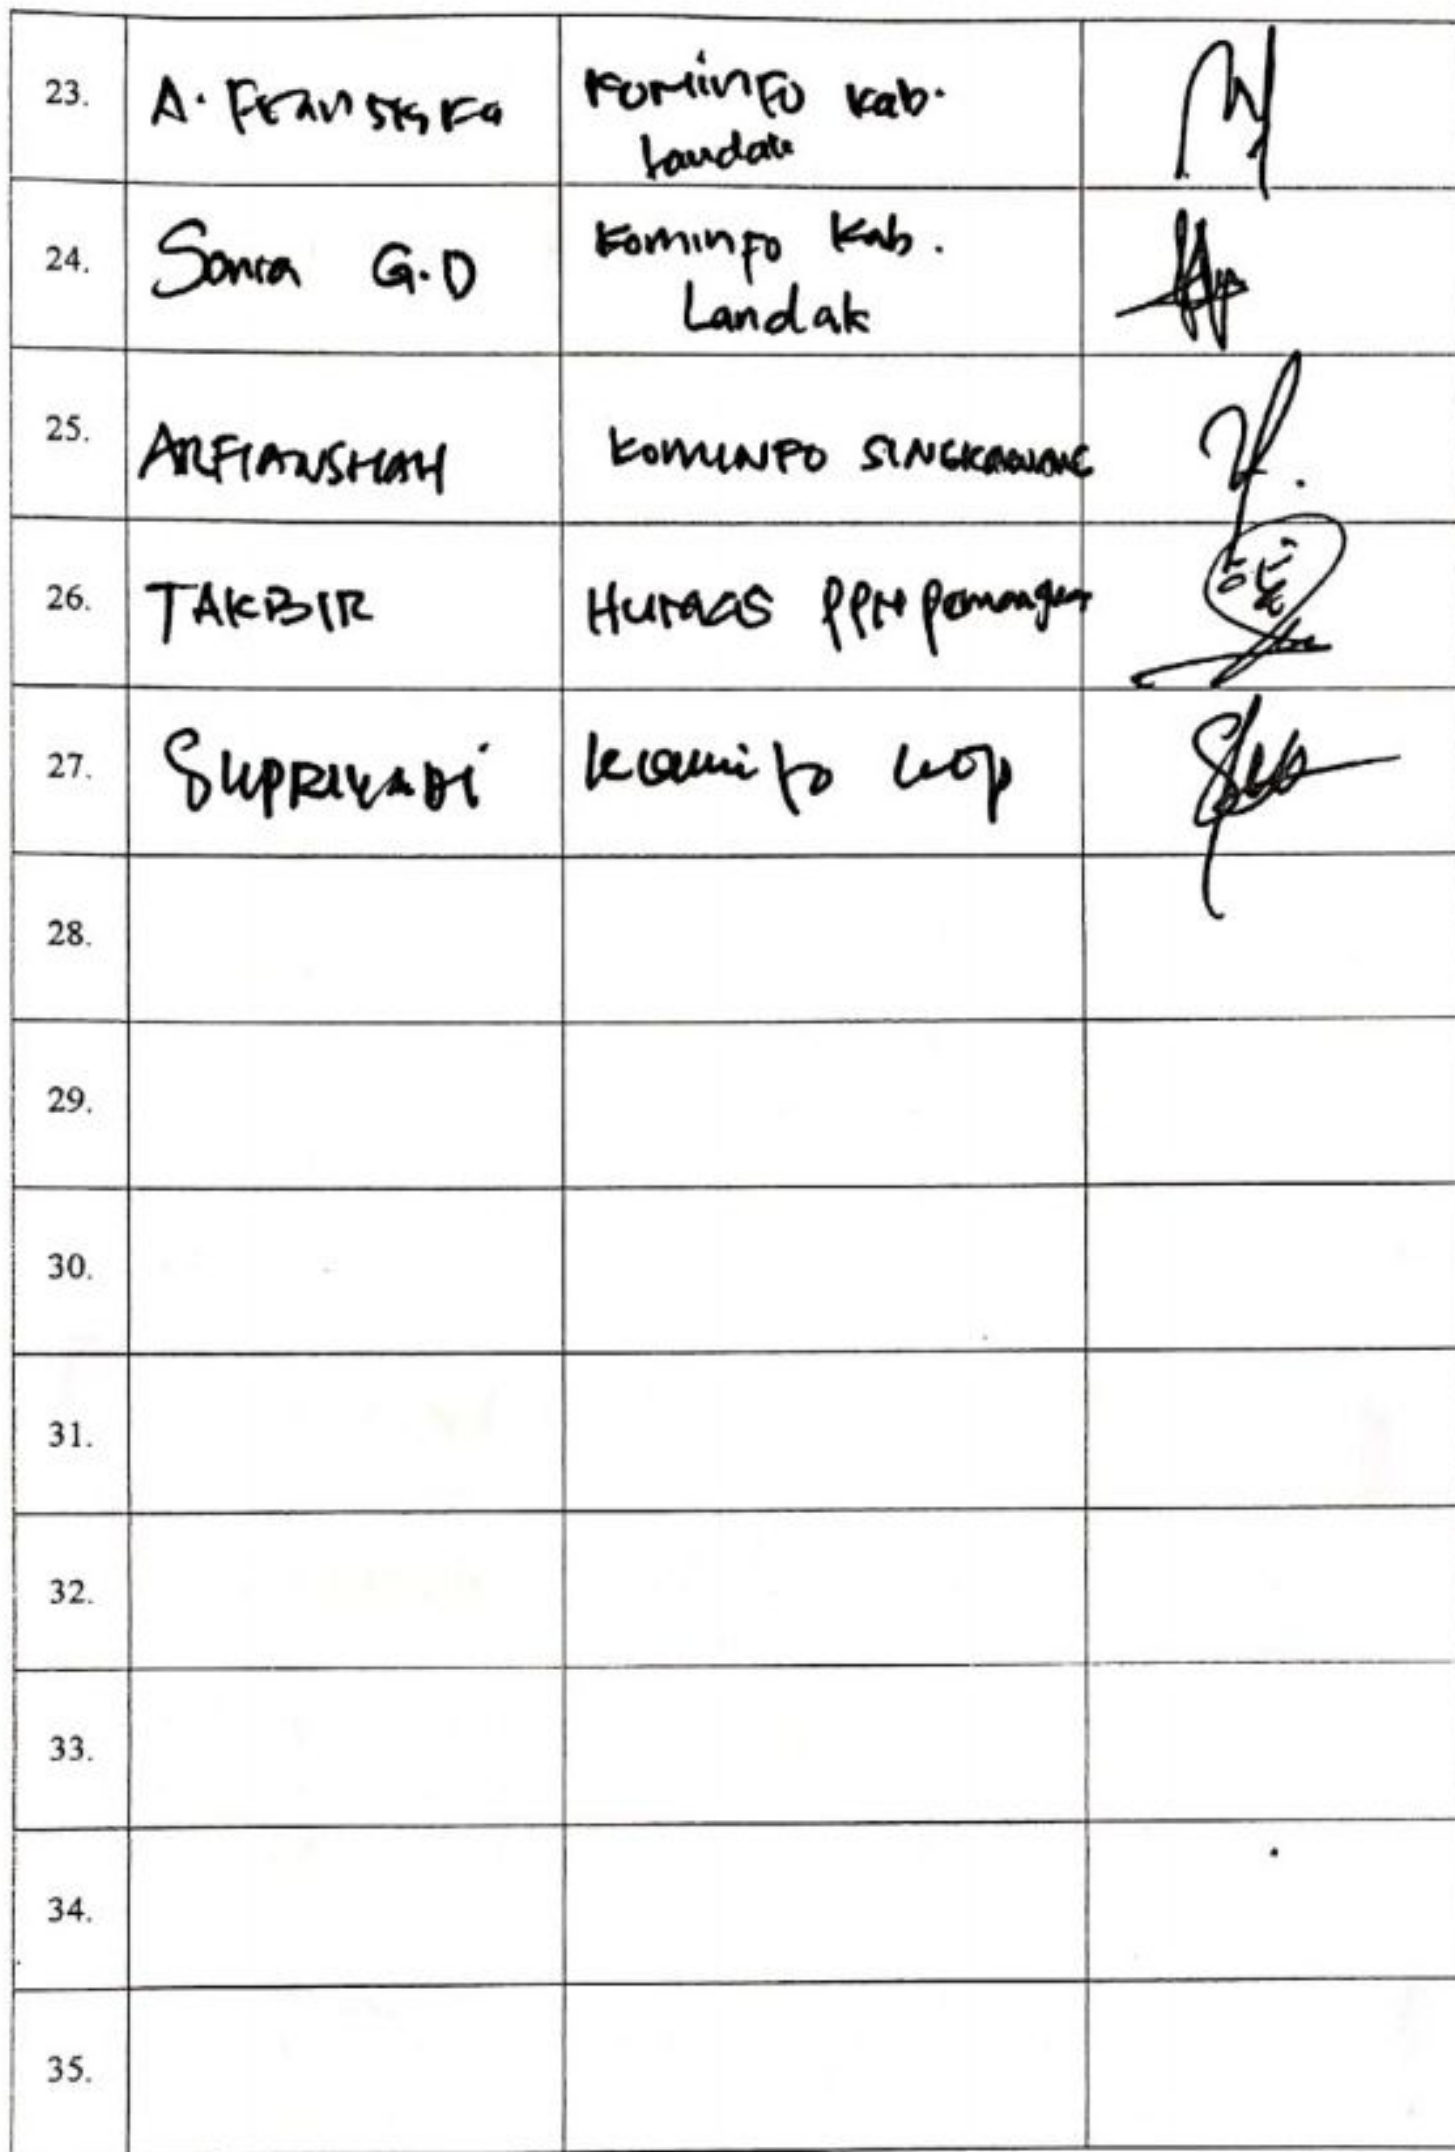 23. A. Fransiska Kominfo Kab.
Landak
24. Sonia G.D Kominfo Kab.
Landak
25. ARFIANSHAH KOMINFO SINGKAWANG
26. TAKBIR HUMAS PPN Pemangkat
27. SUPRIYADI Kominfo
28.
29.
30.
31.
32.
33.
34.
35.